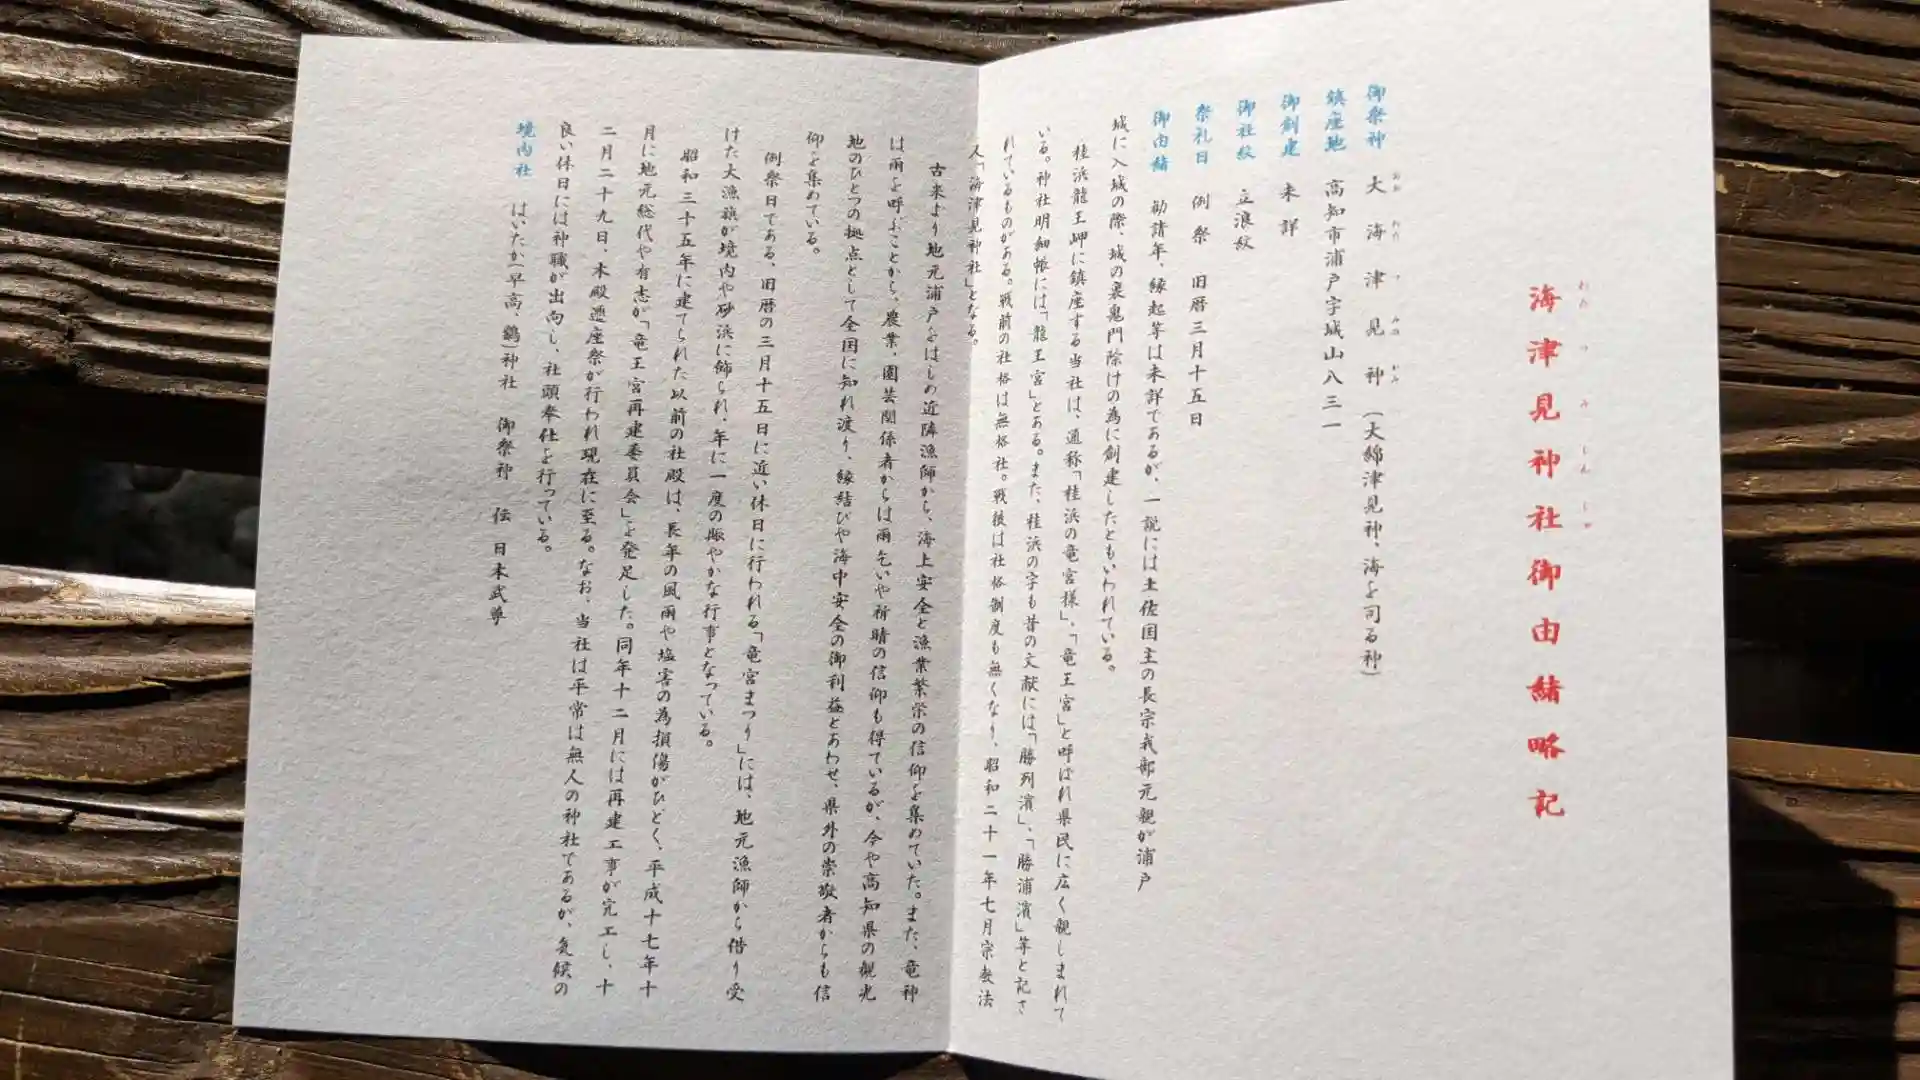 海津見神社御由緒略記
わた つ み じん じゃ
御祭神 大海津見神(大綿津見神、海を司る神)
おお わた つ みの かみ
鎮座地 高知市浦戸字城山八三一
御創建 未詳
御社紋 立浪紋
祭礼日 例祭 旧暦三月十五日
御由緒 勧請年、縁起等は未詳であるが、一説には土佐国主の長宗我部元親が浦戸
城に入城の際、城の裏鬼門除けの為に創建したともいわれている。
桂浜龍王岬に鎮座する当社は、通称「桂浜の竜宮様」、「竜王宮」と呼ばれ県民に広く親しまれて
いる。神社明細帳には、「龍王宮」とある。また、桂浜の字も昔の文献には「勝列濱」、「勝浦濱」等と記さ
れているものがある。戦前の社格は無格社。戦後は社格制度も無くなり、昭和二十一年七月宗教法
人「海津見神社」となる。
古来より地元浦戸をはじめ近隣漁師から、海上安全と漁業繁栄の信仰を集めていた。また、竜神
は雨を呼ぶことから、農業、園芸関係者からは雨乞いや祈晴の信仰も得ているが、今や高知県の観光
地のひとつの拠点として全国に知れ渡り、縁結びや海中安全の御利益とあわせ、県外の崇敬者からも信
仰を集めている。
例祭日である、旧暦の三月十五日に近い休日に行われる「竜宮まつり」には、地元漁師から借り受
けた大漁旗が境内や砂浜に飾られ、年に一度の賑やかな行事となっている。
昭和三十五年に建てられた以前の社殿は、長年の風雨や塩害の為損傷がひどく、平成十七年十
月に地元総代や有志が「竜王宮再建委員会」を発足した。同年十二月には再建工事が完工し、十
二月二十九日、本殿遷座祭が行われ現在に至る。なお、当社は平常は無人の神社であるが、気候の
良い休日には神職が出向し、社頭奉仕を行っている。
境内社 はいたか(早高、鷂)神社 御祭神 伝 日本武尊